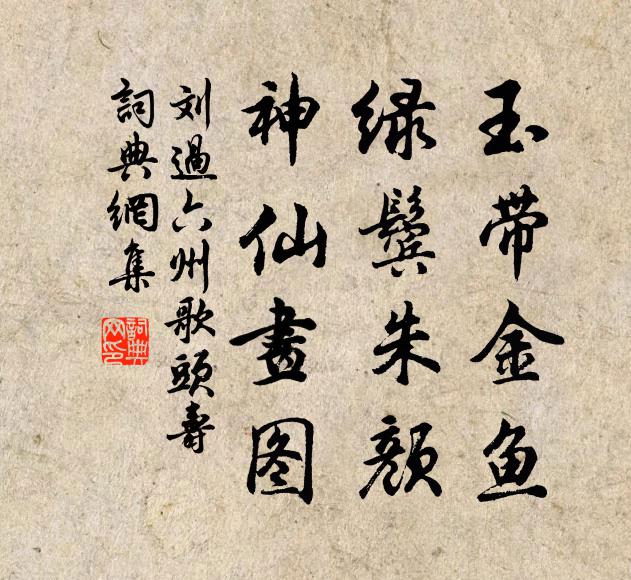 玉带金鱼
绿鬓朱颜
神仙畫图
刘過六州歌頭壽
詞典網集
詞典网印